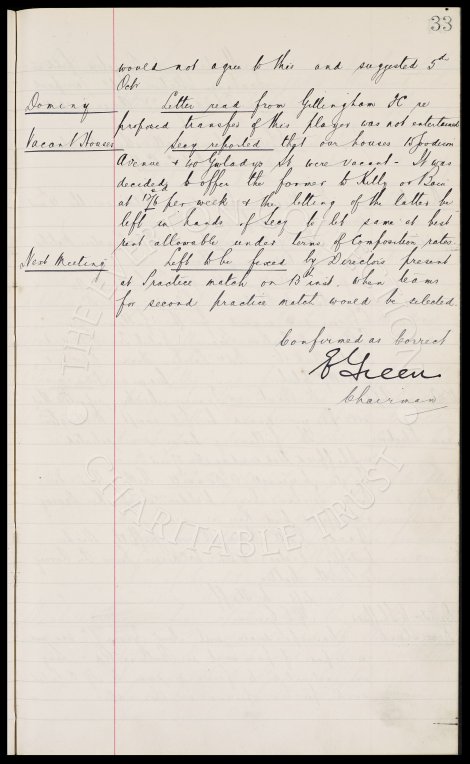 33
would not agree to this and suggested 5th
Oct.
Dominy Letter read from Gillingham FC re
proposed transfer of this player was not entertained
Vacant Houses Secy reported that our houses 15 Goodison
Avenue & 40 Gwladys St were vacant - It was
decided to offer the former to Kelly or Bain
at per week & the letting of the latter be
left in hands of Secy to let same at best
rent allowable under terms of Composition rates.
Next Meeting Left to be fixed by Directors present
at Practice match on 13th inst. when teams
for second practice match would be selected
Confirmed as Correct
E Green
Chairman
CHARITABLE TRUST